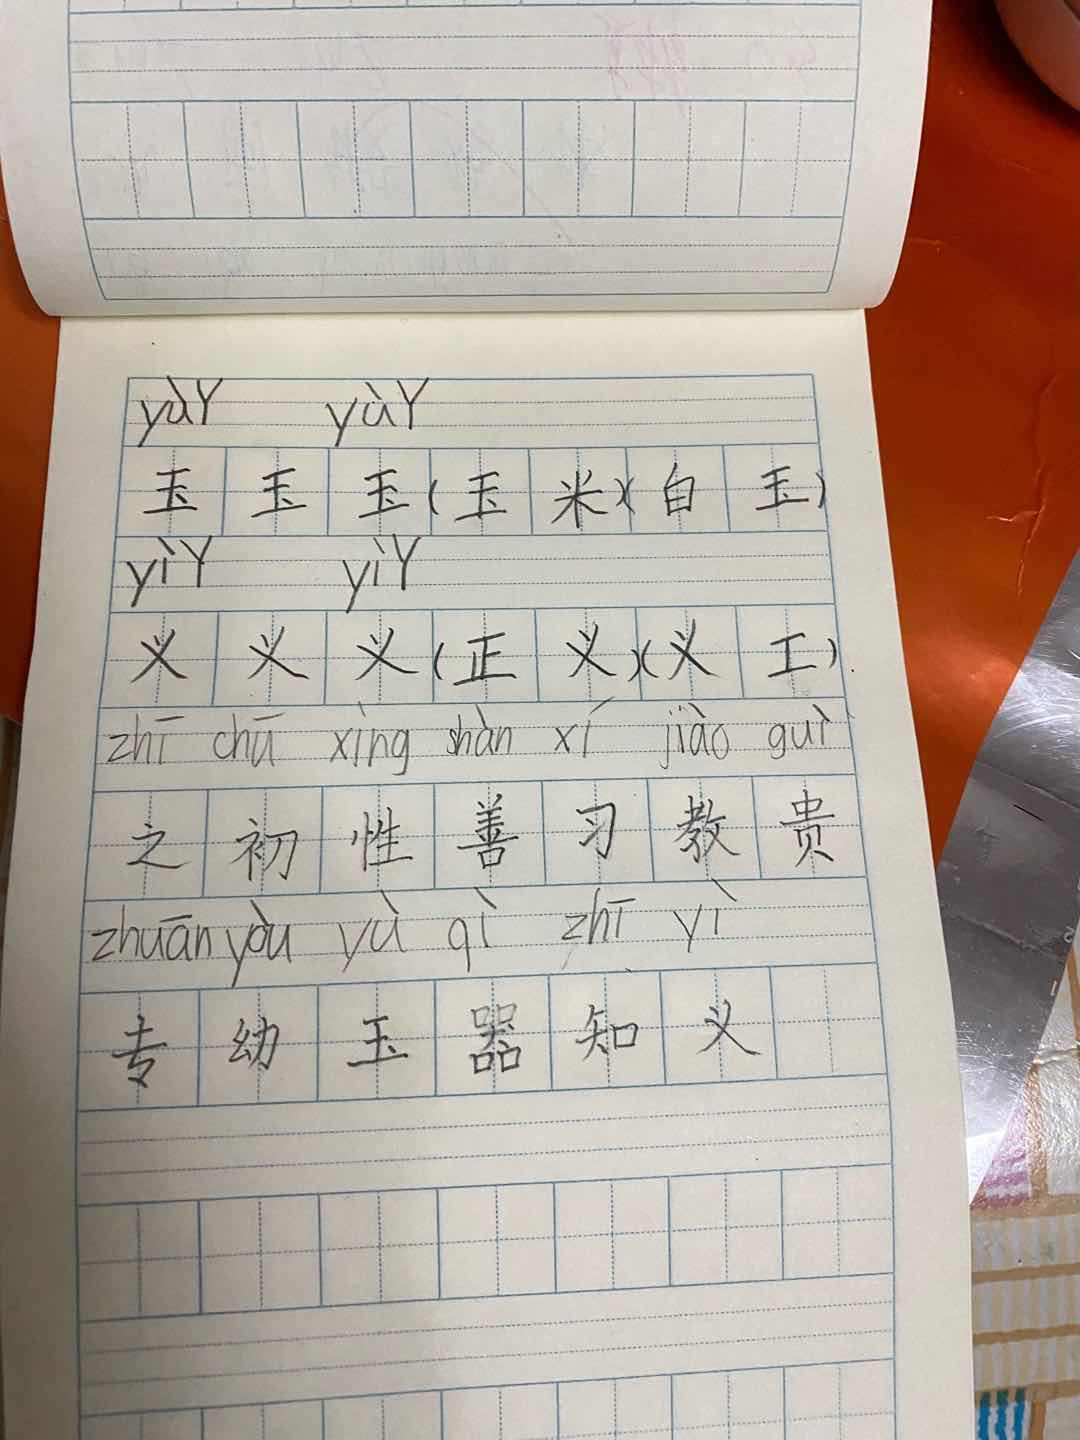 yùY yùY
玉 玉 玉 (玉 米)(白 玉)
yìY yìY
义 义 义 (正 义)(义 工)
zhī chū xìng shàn xí jiào guì
之 初 性 善 习 教 贵
zhuān yòu yù qì zhī yì
专 幼 玉 器 知 义